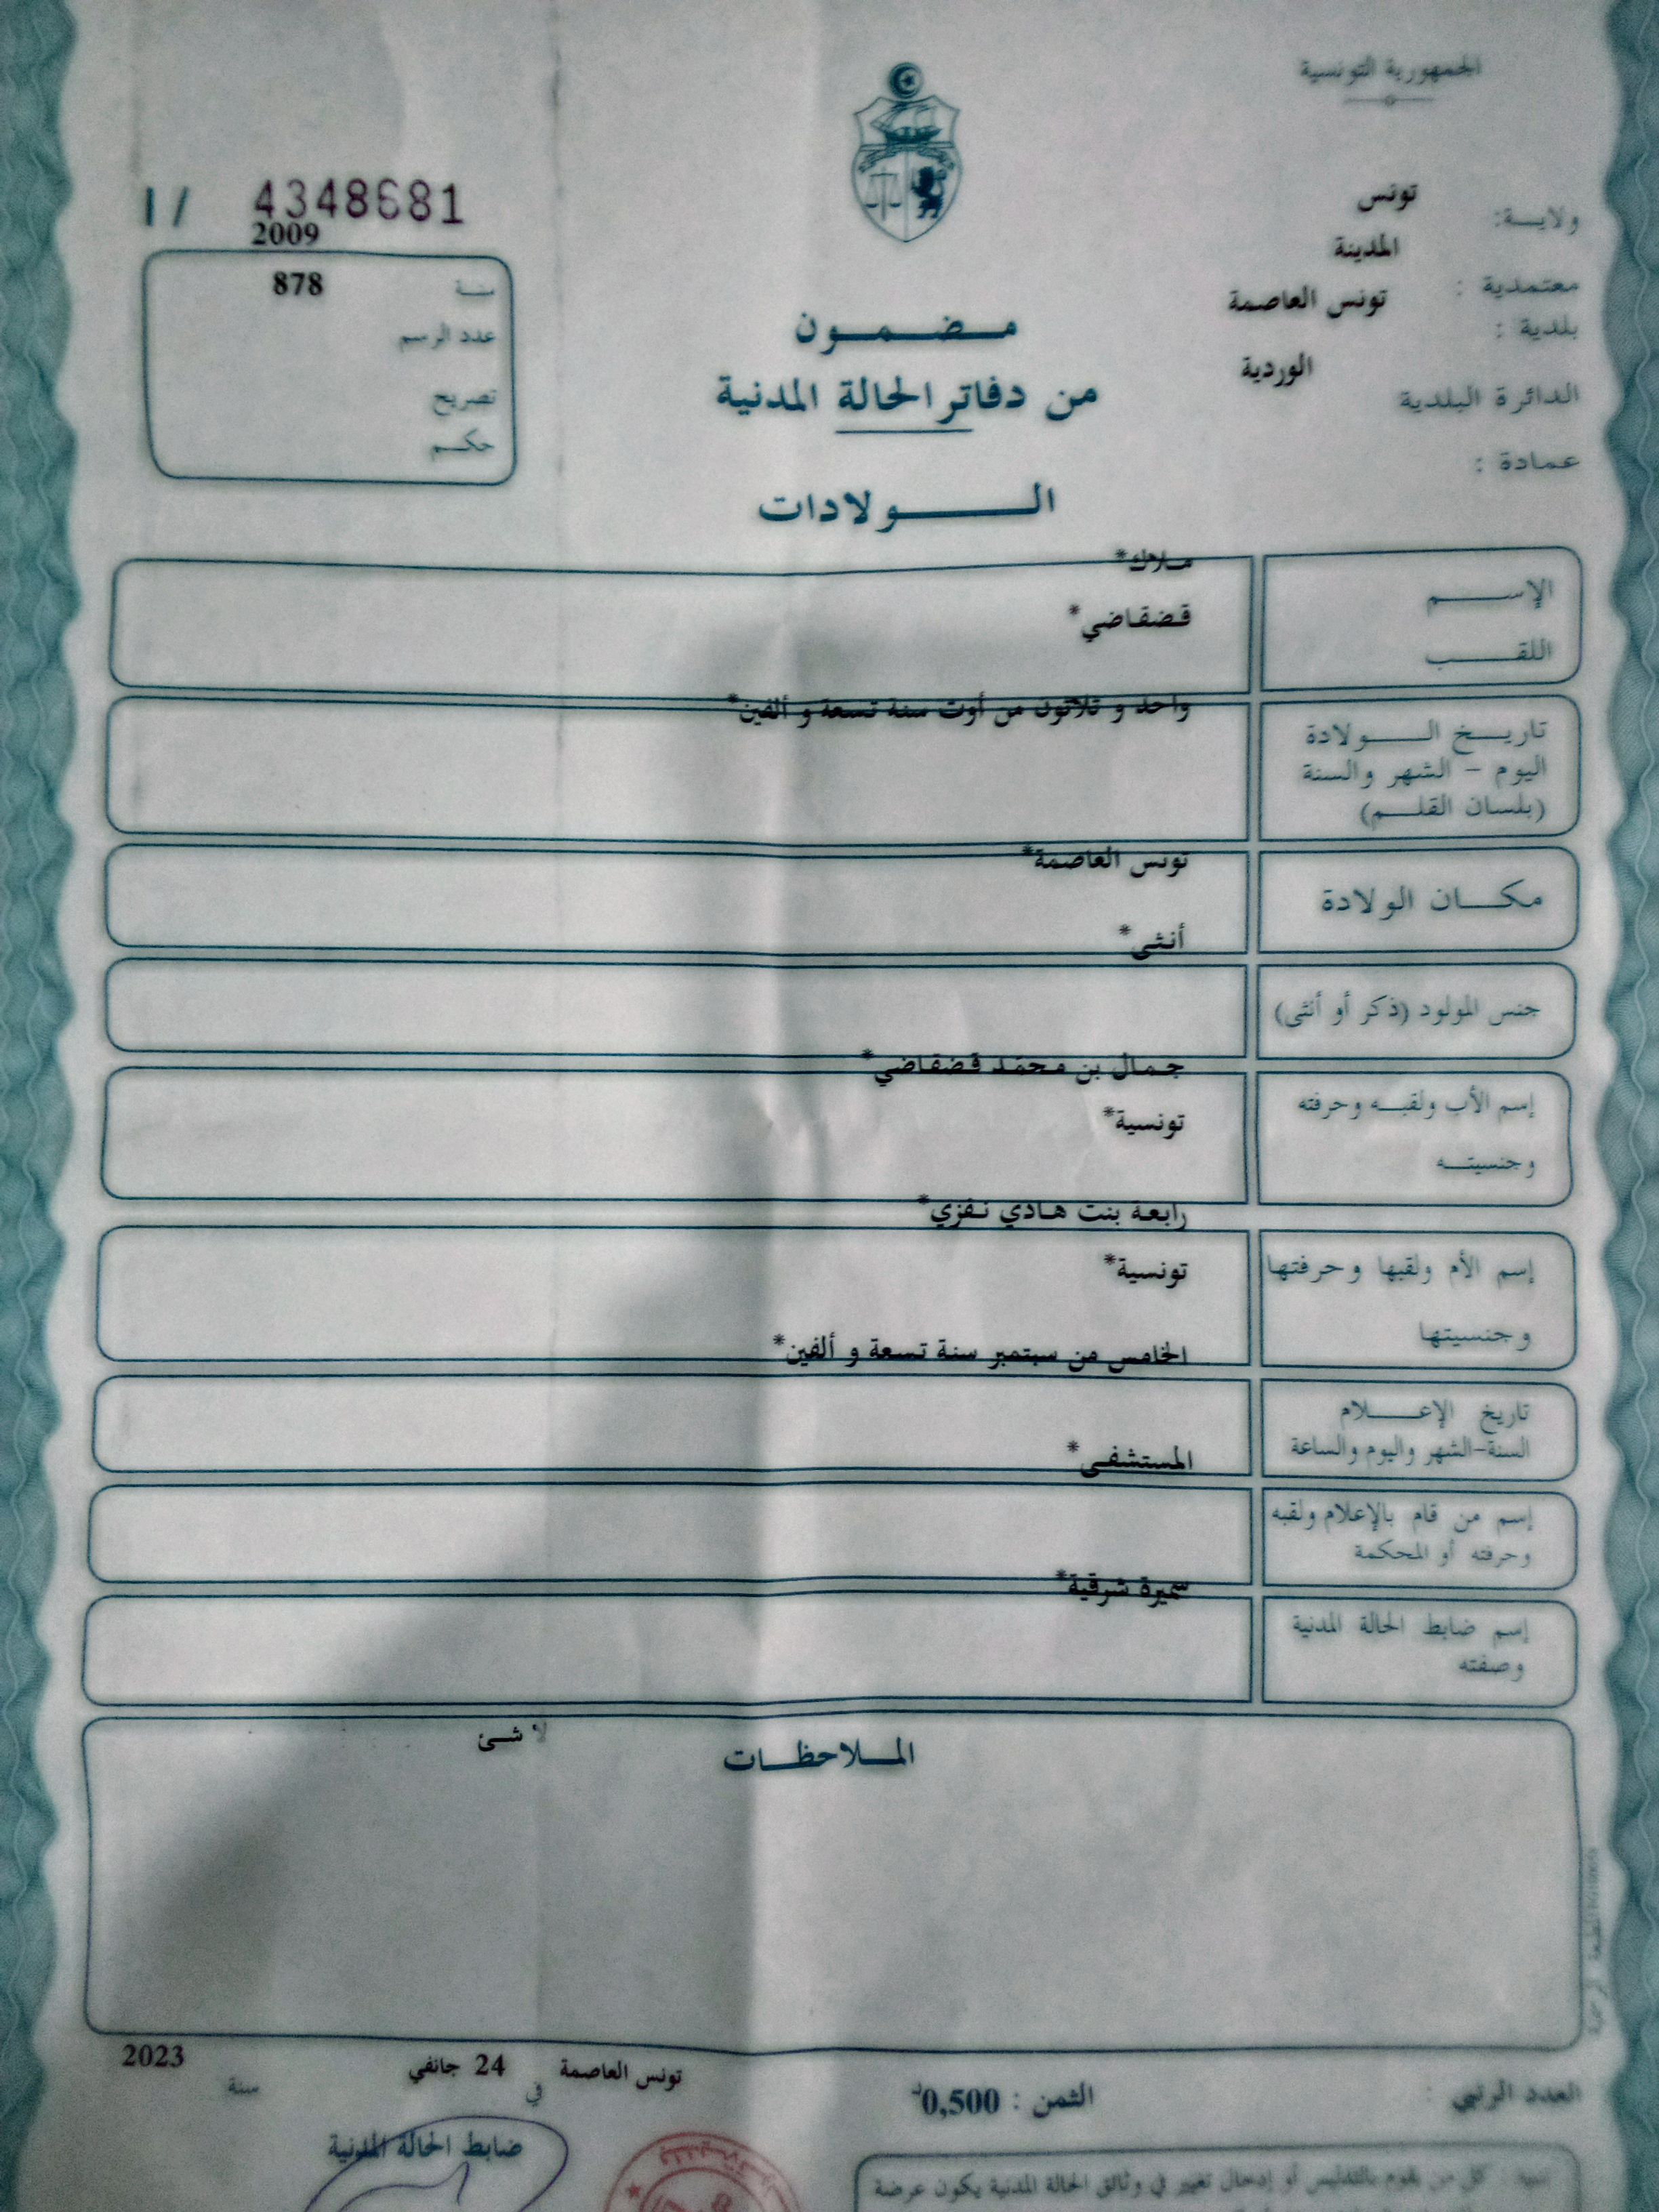 الجمهورية التونسية
ولايـــة: تونس
معتمدية : المدينة
بلدية : تونس العاصمة
الدائرة البلدية الوردية
عمادة :
مـضـمـون
من دفاتر الحالة المدنية
الـولادات
1/ 4348681
2009
سنة 878
عدد الرسم
تصريح
حكـم
الإســـم ملاك*
اللقـــب قضقاضي*
تاريـخ الـولادة واحد و ثلاثون من أوت سنة تسعة و ألفين*
اليوم – الشهر والسنة
(بلسان القلـم)
مكـان الولادة تونس العاصمة*
أنثى*
جنس المولود (ذكر أو أنثى)
جمال بن محمّد قضقاضي*
إسم الأب ولقبـه وحرفته
تونسية*
وجنسيتـه
رابعة بنت هادي نفزي*
إسم الأم ولقبها وحرفتها تونسية*
وجنسيتها
الخامس من سبتمبر سنة تسعة و ألفين*
تاريخ الإعـلام
السنة-الشهر واليوم والساعة
المستشفى*
إسم من قام بالإعلام ولقبه
وحرفته أو المحكمة
سميرة شرقية*
إسم ضابط الحالة المدنية
وصفته
لا شئ
الملاحظـات
تونس العاصمة في 24 جانفي سنة 2023
العدد الرتبي :
الثمن : 0,500د
ضابط الحالة المدنية
تنبيه : كل من يقوم بالتدليس أو إدخال تغيير في وثائق الحالة المدنية يكون عرضة